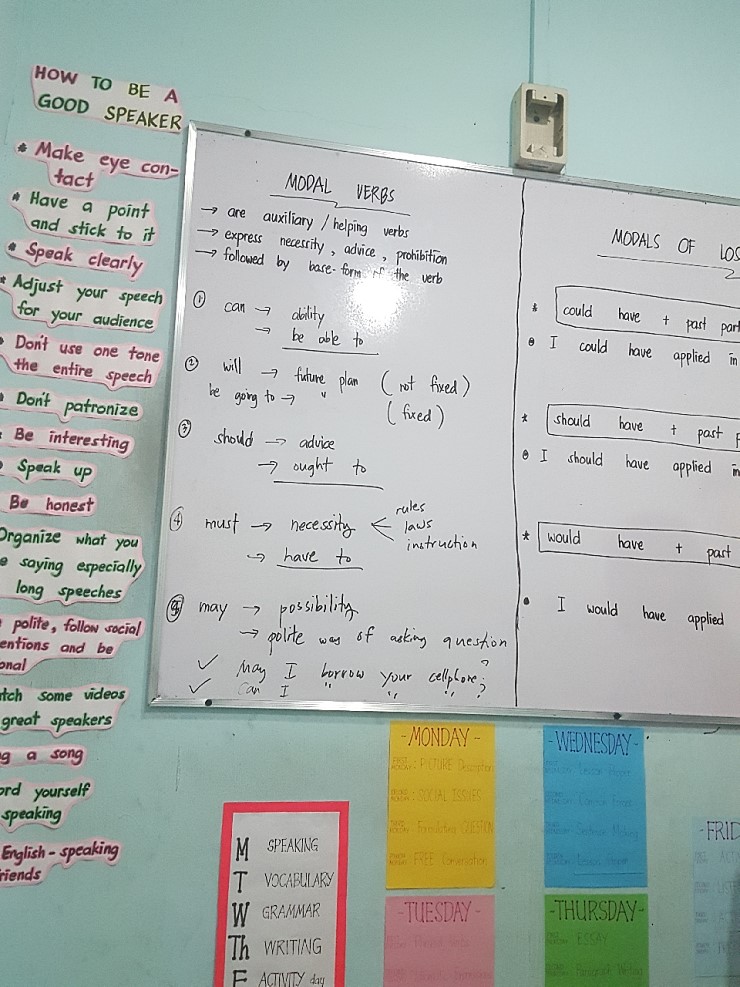 HOW TO BE A
GOOD SPEAKER
* Make eye con-
tact
* Have a point
and stick to it
* Speak clearly
* Adjust your speech
for your audience
Don't use one tone
the entire speech
Don't patronize
Be interesting
Speak up
Be honest
Organize what you
saying especially
long speeches
polite, follow social
and be
some videos
great speakers
a song
yourself
speaking
English-speaking
MODAL VERBS
→ are auxiliary / helping verbs
→ express necessity, advice, prohibition
→ followed by base-form of the verb
① can → ability
→ be able to
② will → future plan (not fixed)
be going to → " (fixed)
③ should → advice
→ ought to
④ must → necessity < rules
laws
instruction
→ have to
⑤ may → possibility
→ polite way of asking question
✓ May I borrow your cellphone?
✓ Can I " " " ?
MODALS OF
* could have + past
• I could have applied in
* should have + past
• I should have applied in
* would have + past
• I would have applied
M SPEAKING
T VOCABULARY
W GRAMMAR
Th WRITING
F ACTIVITY day
- MONDAY -
: PICTURE Description
: SOCIAL ISSUES
: Formulating QUESTION
: FREE Conversation
- WEDNESDAY -
- TUESDAY -
- THURSDAY -
ESSAY
Paragraph Writing